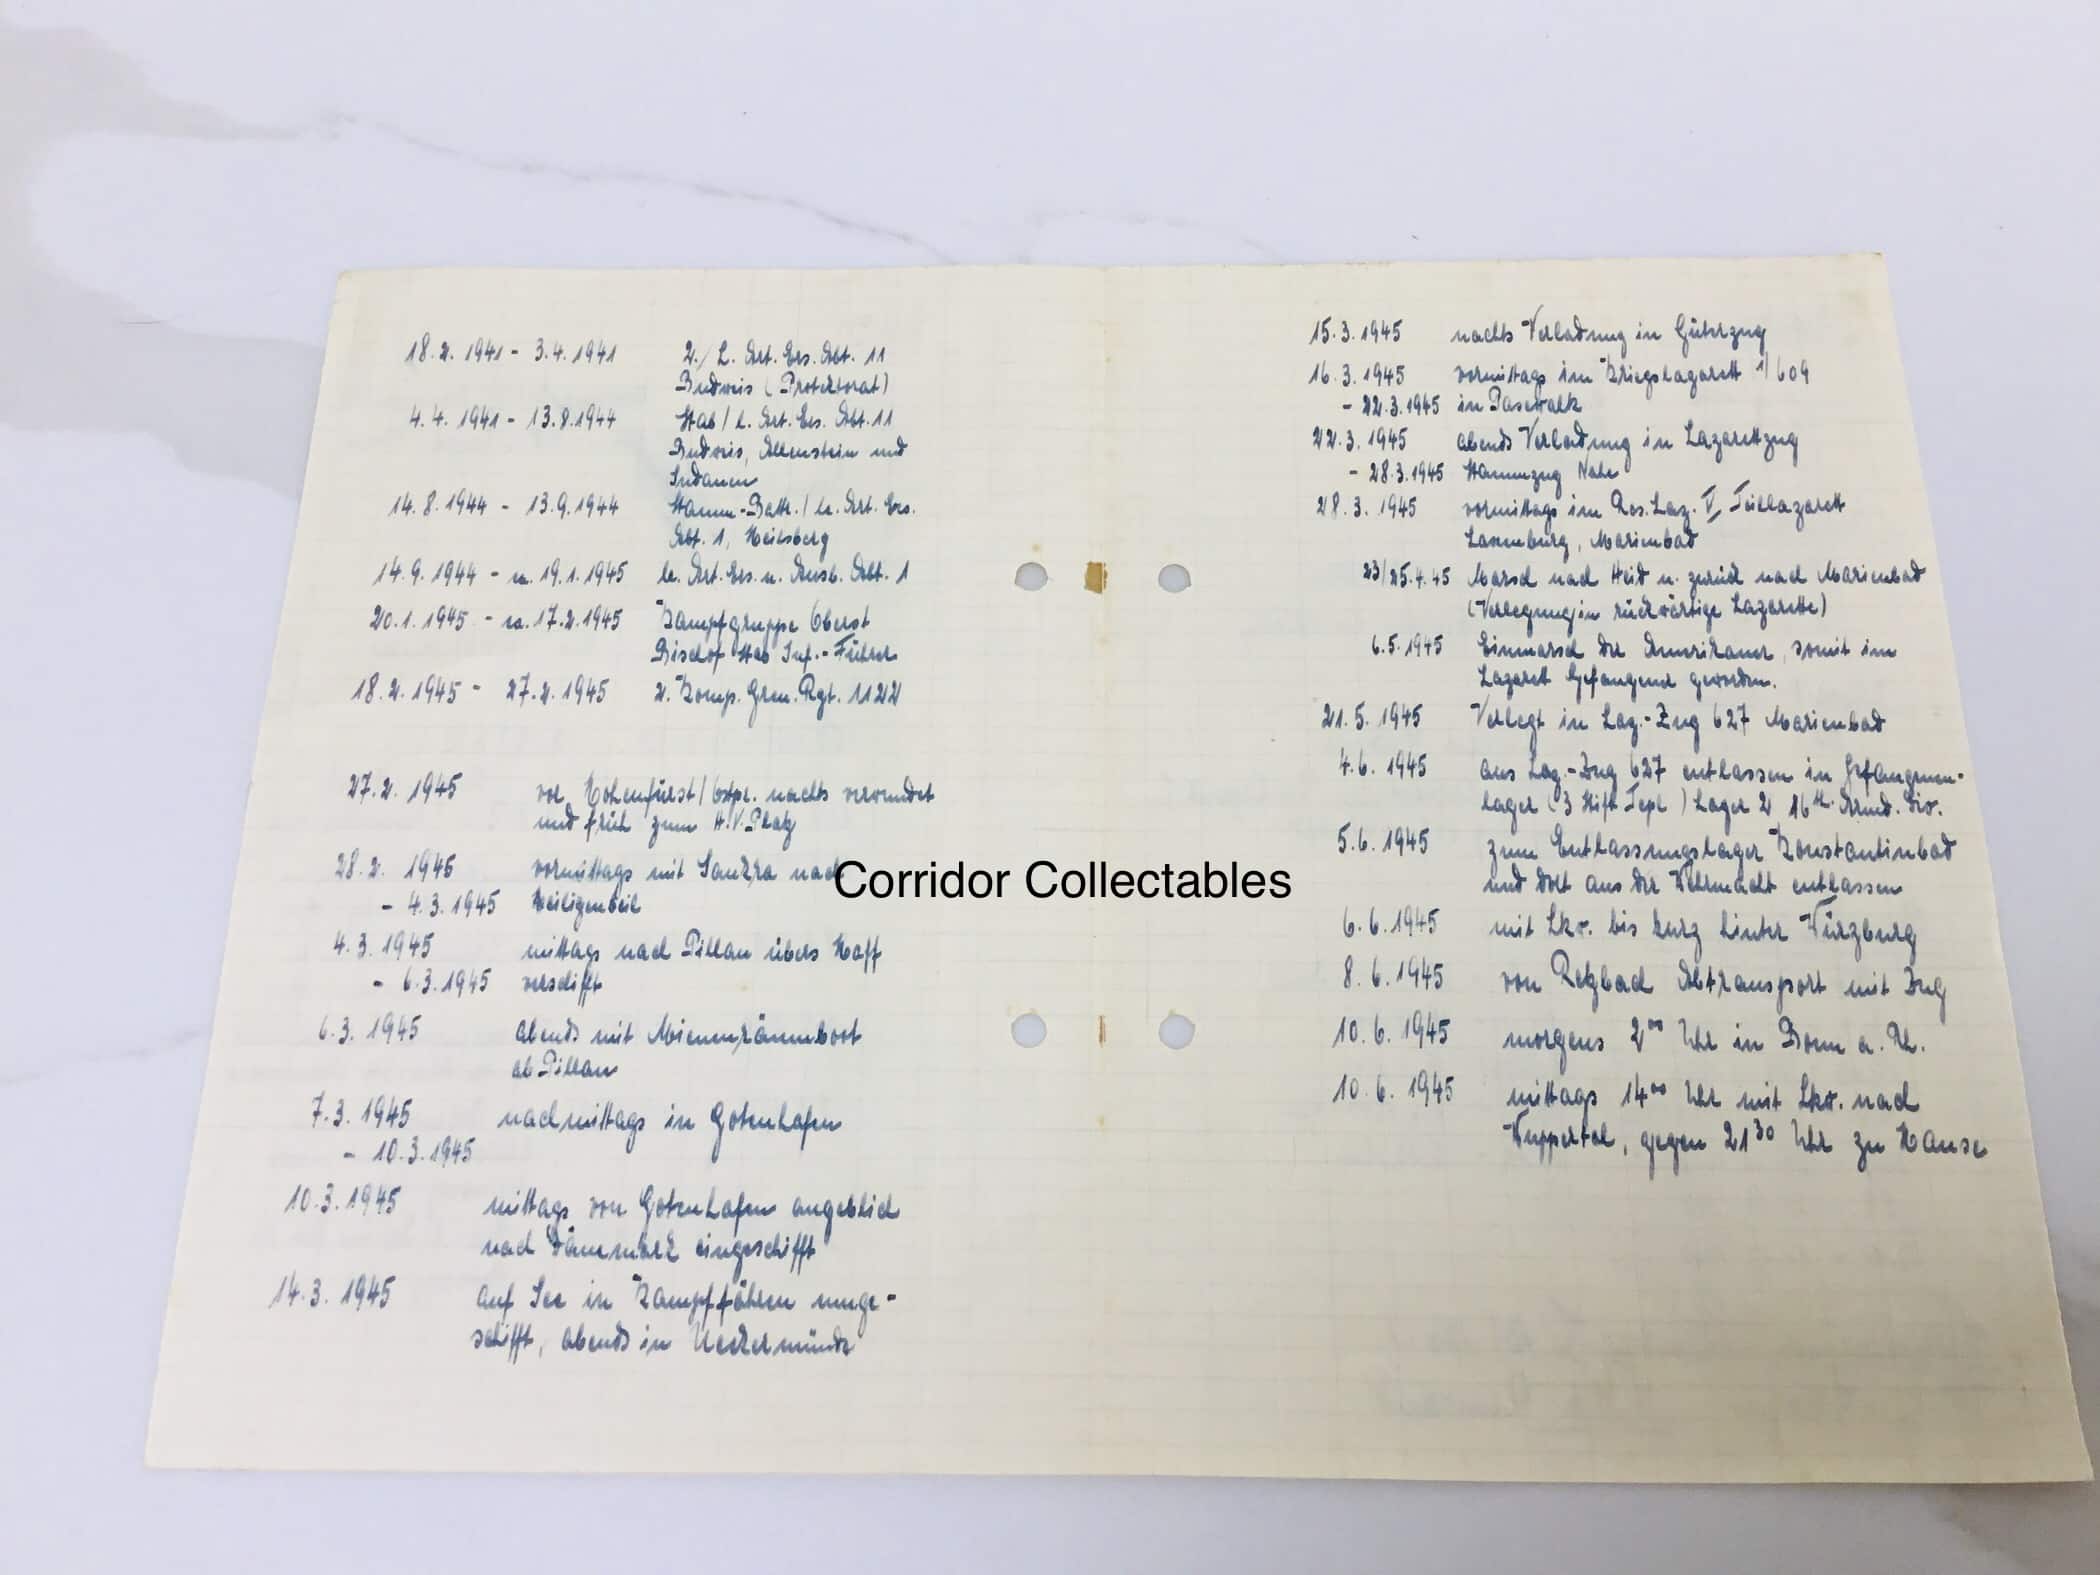 18.2.1941 - 3.4.1941 2./ l. Art. Ers. Abt. 11
Budweis (Protektorat)
4.4.1941 - 13.8.1944 Stab / l. Art. Ers. Abt. 11
Budweis, Allenstein und
Sudauen
14.8.1944 - 13.9.1944 Stamm-Battr. / le. Art. Ers.
Abt. 1, Heilsberg
14.9.1944 - 19.1.1945 le. Art. Ers. u. Ausb. Abt. 1
20.1.1945 - 17.2.1945 Kampfgruppe Oberst
Bischof Stab Inf.-Führer
18.2.1945 - 27.2.1945 2. Komp. Gren. Rgt. 1122
27.2.1945 vor Hohenfürst / Ostpr. nachts verwundet
und früh zum H.V. Platz
28.2.1945 vormittags mit Sankra nach
- 4.3.1945 Heiligenbeil
4.3.1945 mittags nach Pillau übers Haff
- 6.3.1945 verschifft
6.3.1945 abends mit Minenräumboot
ab Pillau
7.3.1945 nachmittags in Gotenhafen
- 10.3.1945
10.3.1945 mittags von Gotenhafen angeblich
nach Dänemark eingeschifft
14.3.1945 auf See in Kampffähren umge-
schifft, abends in Ueckermünde
15.3.1945 nachts Verladung in Güterzug
16.3.1945 vormittags im Kriegslazarett 1/609
- 22.3.1945 in Pasewalk
22.3.1945 abends Verladung in Lazarettzug
- 28.3.1945 Stammzug Nahe
28.3.1945 vormittags im Res. Laz. V, Teillazarett
Luxemburg, Marienbad
23/25.4.45 Marsch nach Heid u. zurück nach Marienbad
(Verlegung in rückwärtige Lazarette)
6.5.1945 Einmarsch der Amerikaner, somit im
Lazarett Gefangener geworden.
21.5.1945 Verlegt in Laz.-Zug 627 Marienbad
4.6.1945 aus Laz.-Zug 627 entlassen in Gefangenen-
lager (3 Stift Tepl) Lager 2 16th Armd. Div.
5.6.1945 zum Entlassungslager Konstantinbad
und dort aus der Wehrmacht entlassen
6.6.1945 mit Lkw. bis kurz hinter Würzburg
8.6.1945 von Retzbach Abtransport mit Zug
10.6.1945 morgens 2°° Uhr in Bonn a. Rh.
10.6.1945 mittags 14°° Uhr mit Lkw. nach
Wuppertal, gegen 21³⁰ Uhr zu Hause
Corridor Collectables